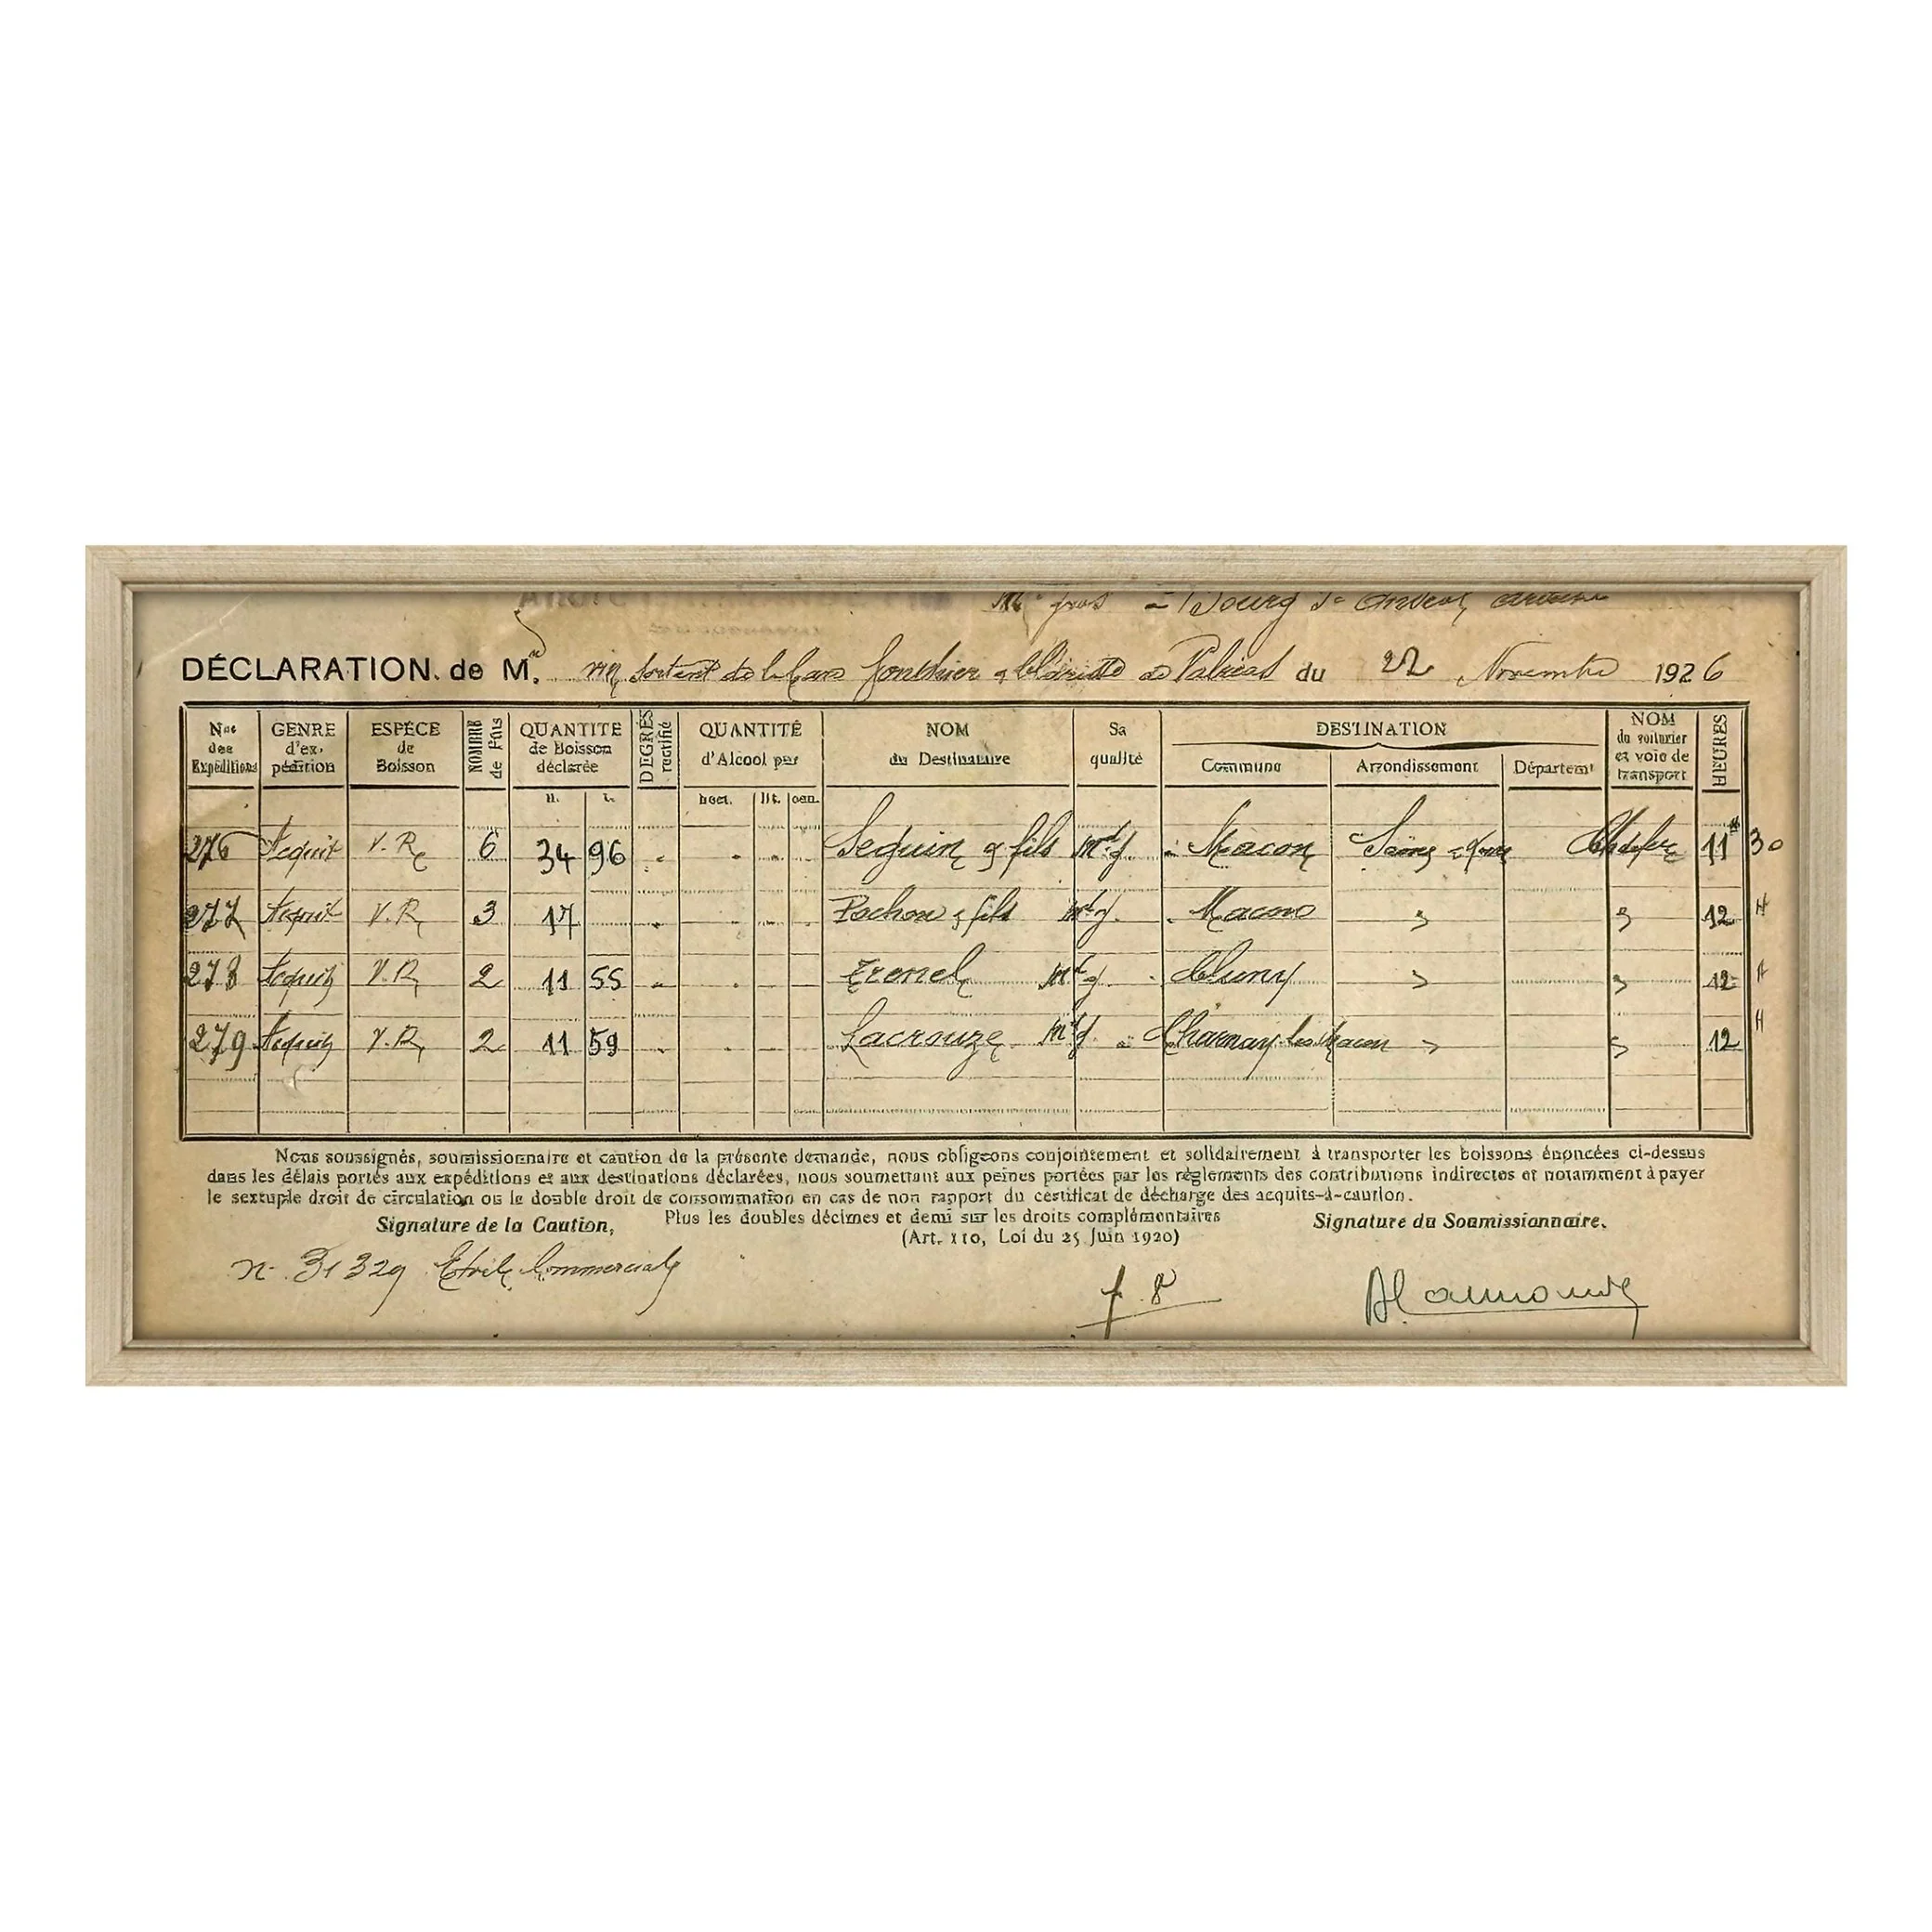 gros = Bourg St Andéol, Ardèche
DÉCLARATION. de M. vin sortant de du 22 Novembre 1926
Nos des Expéditions GENRE d'expédition ESPÈCE de Boisson NOMBRE de Fûts QUANTITÉ de Boisson déclarée DEGRÉS rectifié QUANTITÉ d'Alcool par NOM du Destinataire Sa qualité DESTINATION NOM du voiturier et voie de transport HEURES
Commune Arrondissement Départemt
H. L. hect. lit. cen.
276 Acquit V. R. 6 34 96 Seguin & fils Md g. Macon Saône & Loire Ch de fer 11 H 30
277 Acquit V. R. 3 17 Pochon & fils Md g. Macon " " 12 H
278 Acquit V. R. 2 11 55 Trenel Md g. Cluny " " 12 H
279 Acquit V. R. 2 11 59 Lacrouze Md g. Charnay les Macon " " 12 H
Nous soussignés, soumissionnaire et caution de la présente demande, nous obligeons conjointement et solidairement à transporter les boissons énoncées ci-dessus
dans les délais portés aux expéditions et aux destinations déclarées, nous soumettant aux peines portées par les règlements des contributions indirectes et notamment à payer
le sextuple droit de circulation ou le double droit de consommation en cas de non rapport du certificat de décharge des acquits-à-caution.
Plus les doubles décimes et demi sur les droits complémentaires
Signature de la Caution, Signature du Soumissionnaire.
(Art. 110, Loi du 25 Juin 1920)
n° 31329 Commerciale